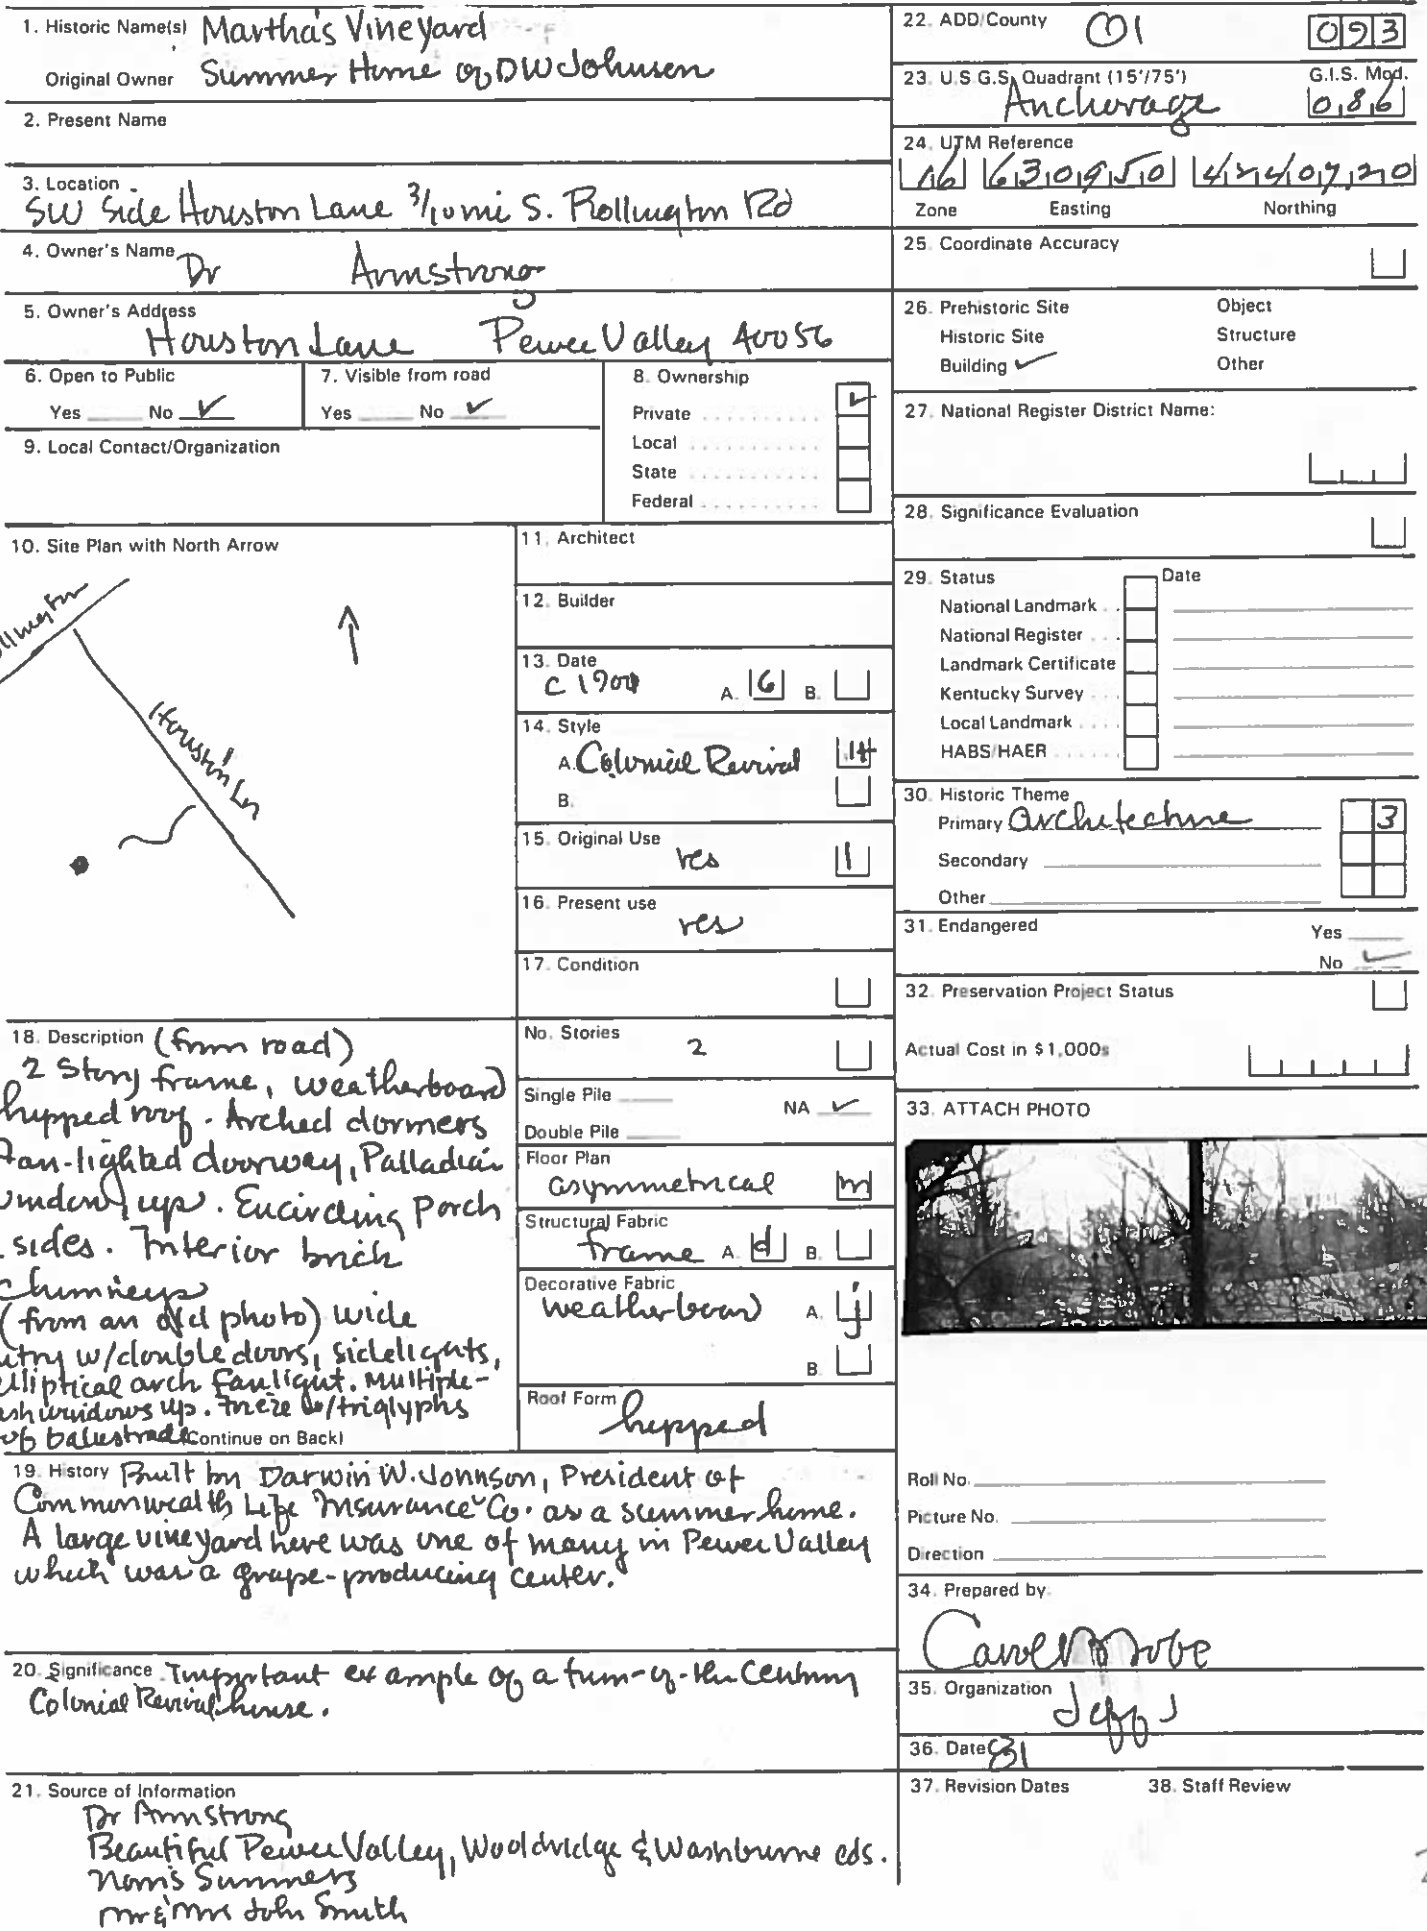 1. Historic Name(s) Martha's Vineyard
Original Owner Summer Home of DW Johnson
2. Present Name
3. Location
SW Side Houston Lane 3/10 mi S. Rollington Rd
4. Owner's Name Dr Armstrong
5. Owner's Address
Houston Lane Pewee Valley 40056
6. Open to Public
Yes No ✓
7. Visible from road
Yes No ✓
8. Ownership
Private ✓
Local
State
Federal
9. Local Contact/Organization
10. Site Plan with North Arrow
ollington
Houston Ln
11. Architect
12. Builder
13. Date
c 1900 A. 6 B.
14. Style
A. Colonial Revival 14
B.
15. Original Use
res 1
16. Present use
res
17. Condition
18. Description (from road)
2 Story frame, weatherboard
hipped roof. Arched dormers
Fan-lighted doorway, Palladian
window up. Encircling Porch
sides. Interior brick
Chimneys
(from an old photo) wide
ntry w/double doors, sidelights,
elliptical arch fanlight. Multiple-
ash windows up. Frieze w/triglyphs
of balustrade (Continue on Back)
No. Stories
2
Single Pile NA ✓
Double Pile
Floor Plan
asymmetrical m
Structural Fabric
frame A. d B.
Decorative Fabric
weatherboard A. j
B.
Roof Form hipped
19. History Built by Darwin W. Johnson, President of
Commonwealth Life Insurance Co. as a summer home.
A large vineyard here was one of many in Pewee Valley
which was a grape-producing center.
20. Significance Important example of a turn-of-the century
Colonial Revival house.
21. Source of Information
Dr Armstrong
Beautiful Pewee Valley, Wooldridge & Washburne eds.
Norris Summers
Mr & Mrs John Smith
22. ADD/County Ol 093
23. U.S.G.S. Quadrant (15'/75') G.I.S. Mod.
Anchorage 086
24. UTM Reference
16 630950 4240720
Zone Easting Northing
25. Coordinate Accuracy
26. Prehistoric Site Object
Historic Site Structure
Building ✓ Other
27. National Register District Name:
28. Significance Evaluation
29. Status Date
National Landmark
National Register
Landmark Certificate
Kentucky Survey
Local Landmark
HABS/HAER
30. Historic Theme
Primary architecture 3
Secondary
Other
31. Endangered Yes
No ✓
32. Preservation Project Status
Actual Cost in $1,000s
33. ATTACH PHOTO
Roll No.
Picture No.
Direction
34. Prepared by
35. Organization
36. Date 81
37. Revision Dates 38. Staff Review